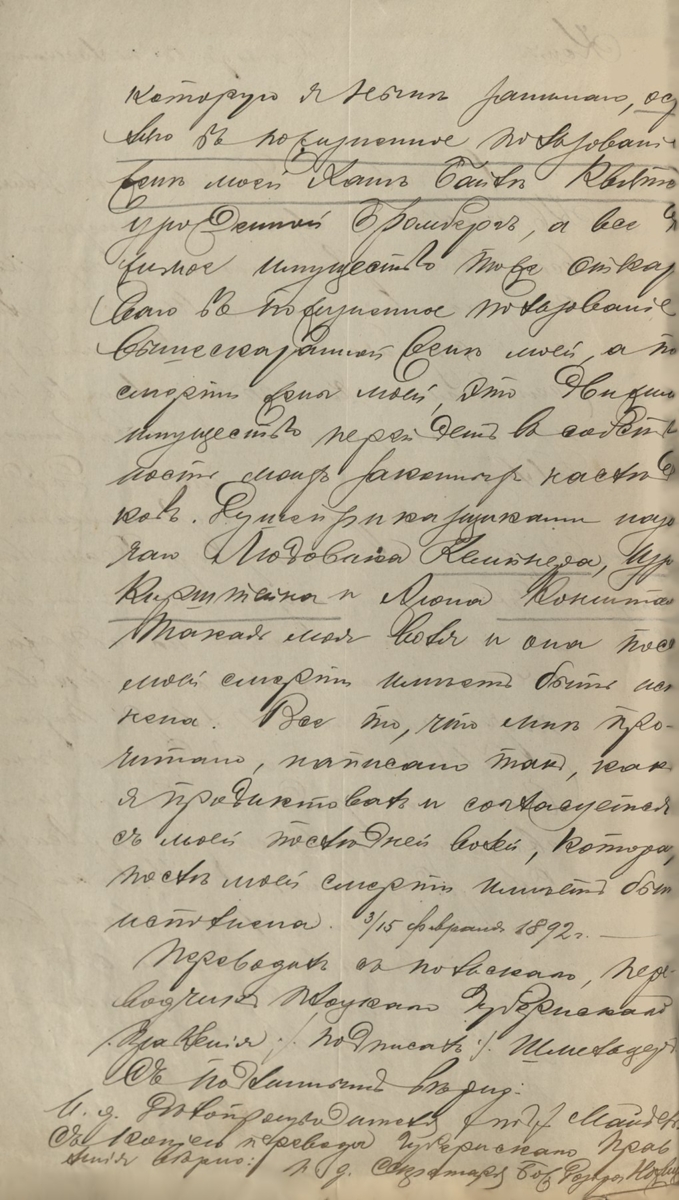 которую я нынѣ занимаю, ос
вляю въ пожизненное пользованіе
женѣ моей Ханѣ Байлѣ Квятъ
урожденной Бромбергъ, а все
жимое имущество тоже отказ
ваю въ пожизненное пользованіе
вышесказанной женѣ моей, а по
смерти жены моей, это движимо
имущество перейдетъ въ собств
ность моихъ законныхъ наслѣд
ковъ. Душеприказчиками назна
чаю Людовика Кемпнера,
и Леона
Такая моя воля и она посл
моей смерти имѣетъ быть исп
нена. Все то, что мнѣ про-
читано, написано такъ, какъ
я продиктовалъ и согласуется
съ моей послѣдней волей, котора,
послѣ моей смерти имѣетъ быть
исполнена. 3/15 февраля 1892 г. —
Переводилъ съ польскаго, пере-
водчикъ Губернскаго
Правленія ./. подписалъ ./.
Съ подлиннымъ вѣрно:
И. д. Дѣлопроизводителя
Съ копіею перевода Губернскаго Прав
ленія вѣрно: И. д. Секретаря